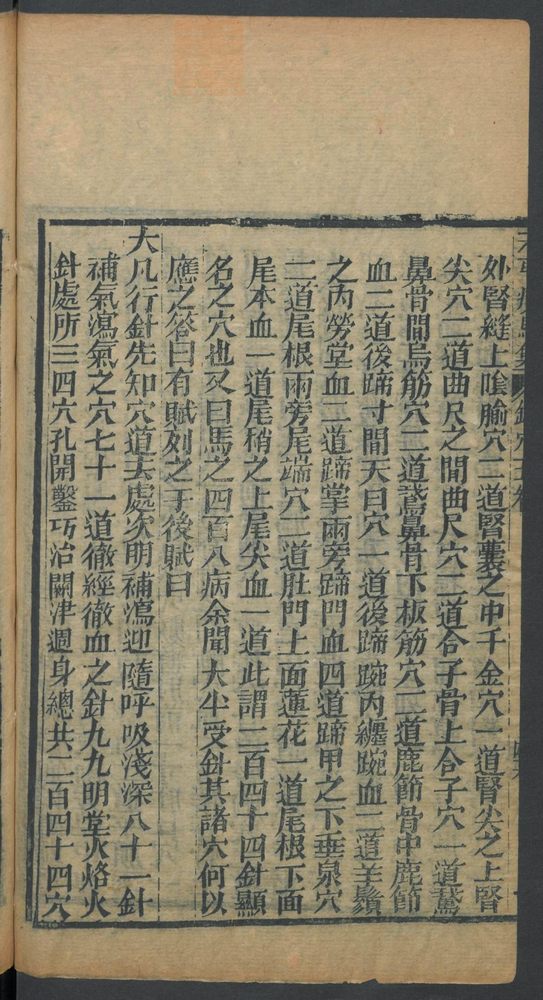 外腎縫上陰腧穴二道腎囊之中千金穴一道腎尖之上腎
尖穴二道曲尺之間曲尺穴二道合子骨上合子穴一道鵞
鼻骨間烏筋穴二道鵞鼻骨下板筋穴二道鹿節骨中鹿節
血二道後蹄寸間天臼穴一道後蹄踠內纏踠血二道羊鬚
之內勞堂血二道蹄掌兩旁蹄門血四道蹄甲之下垂泉穴
二道尾根兩旁尾端穴二道肚門上面蓮花一道尾根下面
尾本血一道尾梢之上尾尖血一道此謂二百四十四針顯
名之穴也又曰馬之四百八病余聞大半受針其諸穴何以
應之答曰有賦列之于後賦曰
大凡行針先知穴道去處次明補瀉迎隨呼吸淺深八十一針
補氣瀉氣之穴七十一道徹經徹血之針九九明堂火烙火
針處所三四穴孔開鑿巧治關津週身總共二百四十四穴